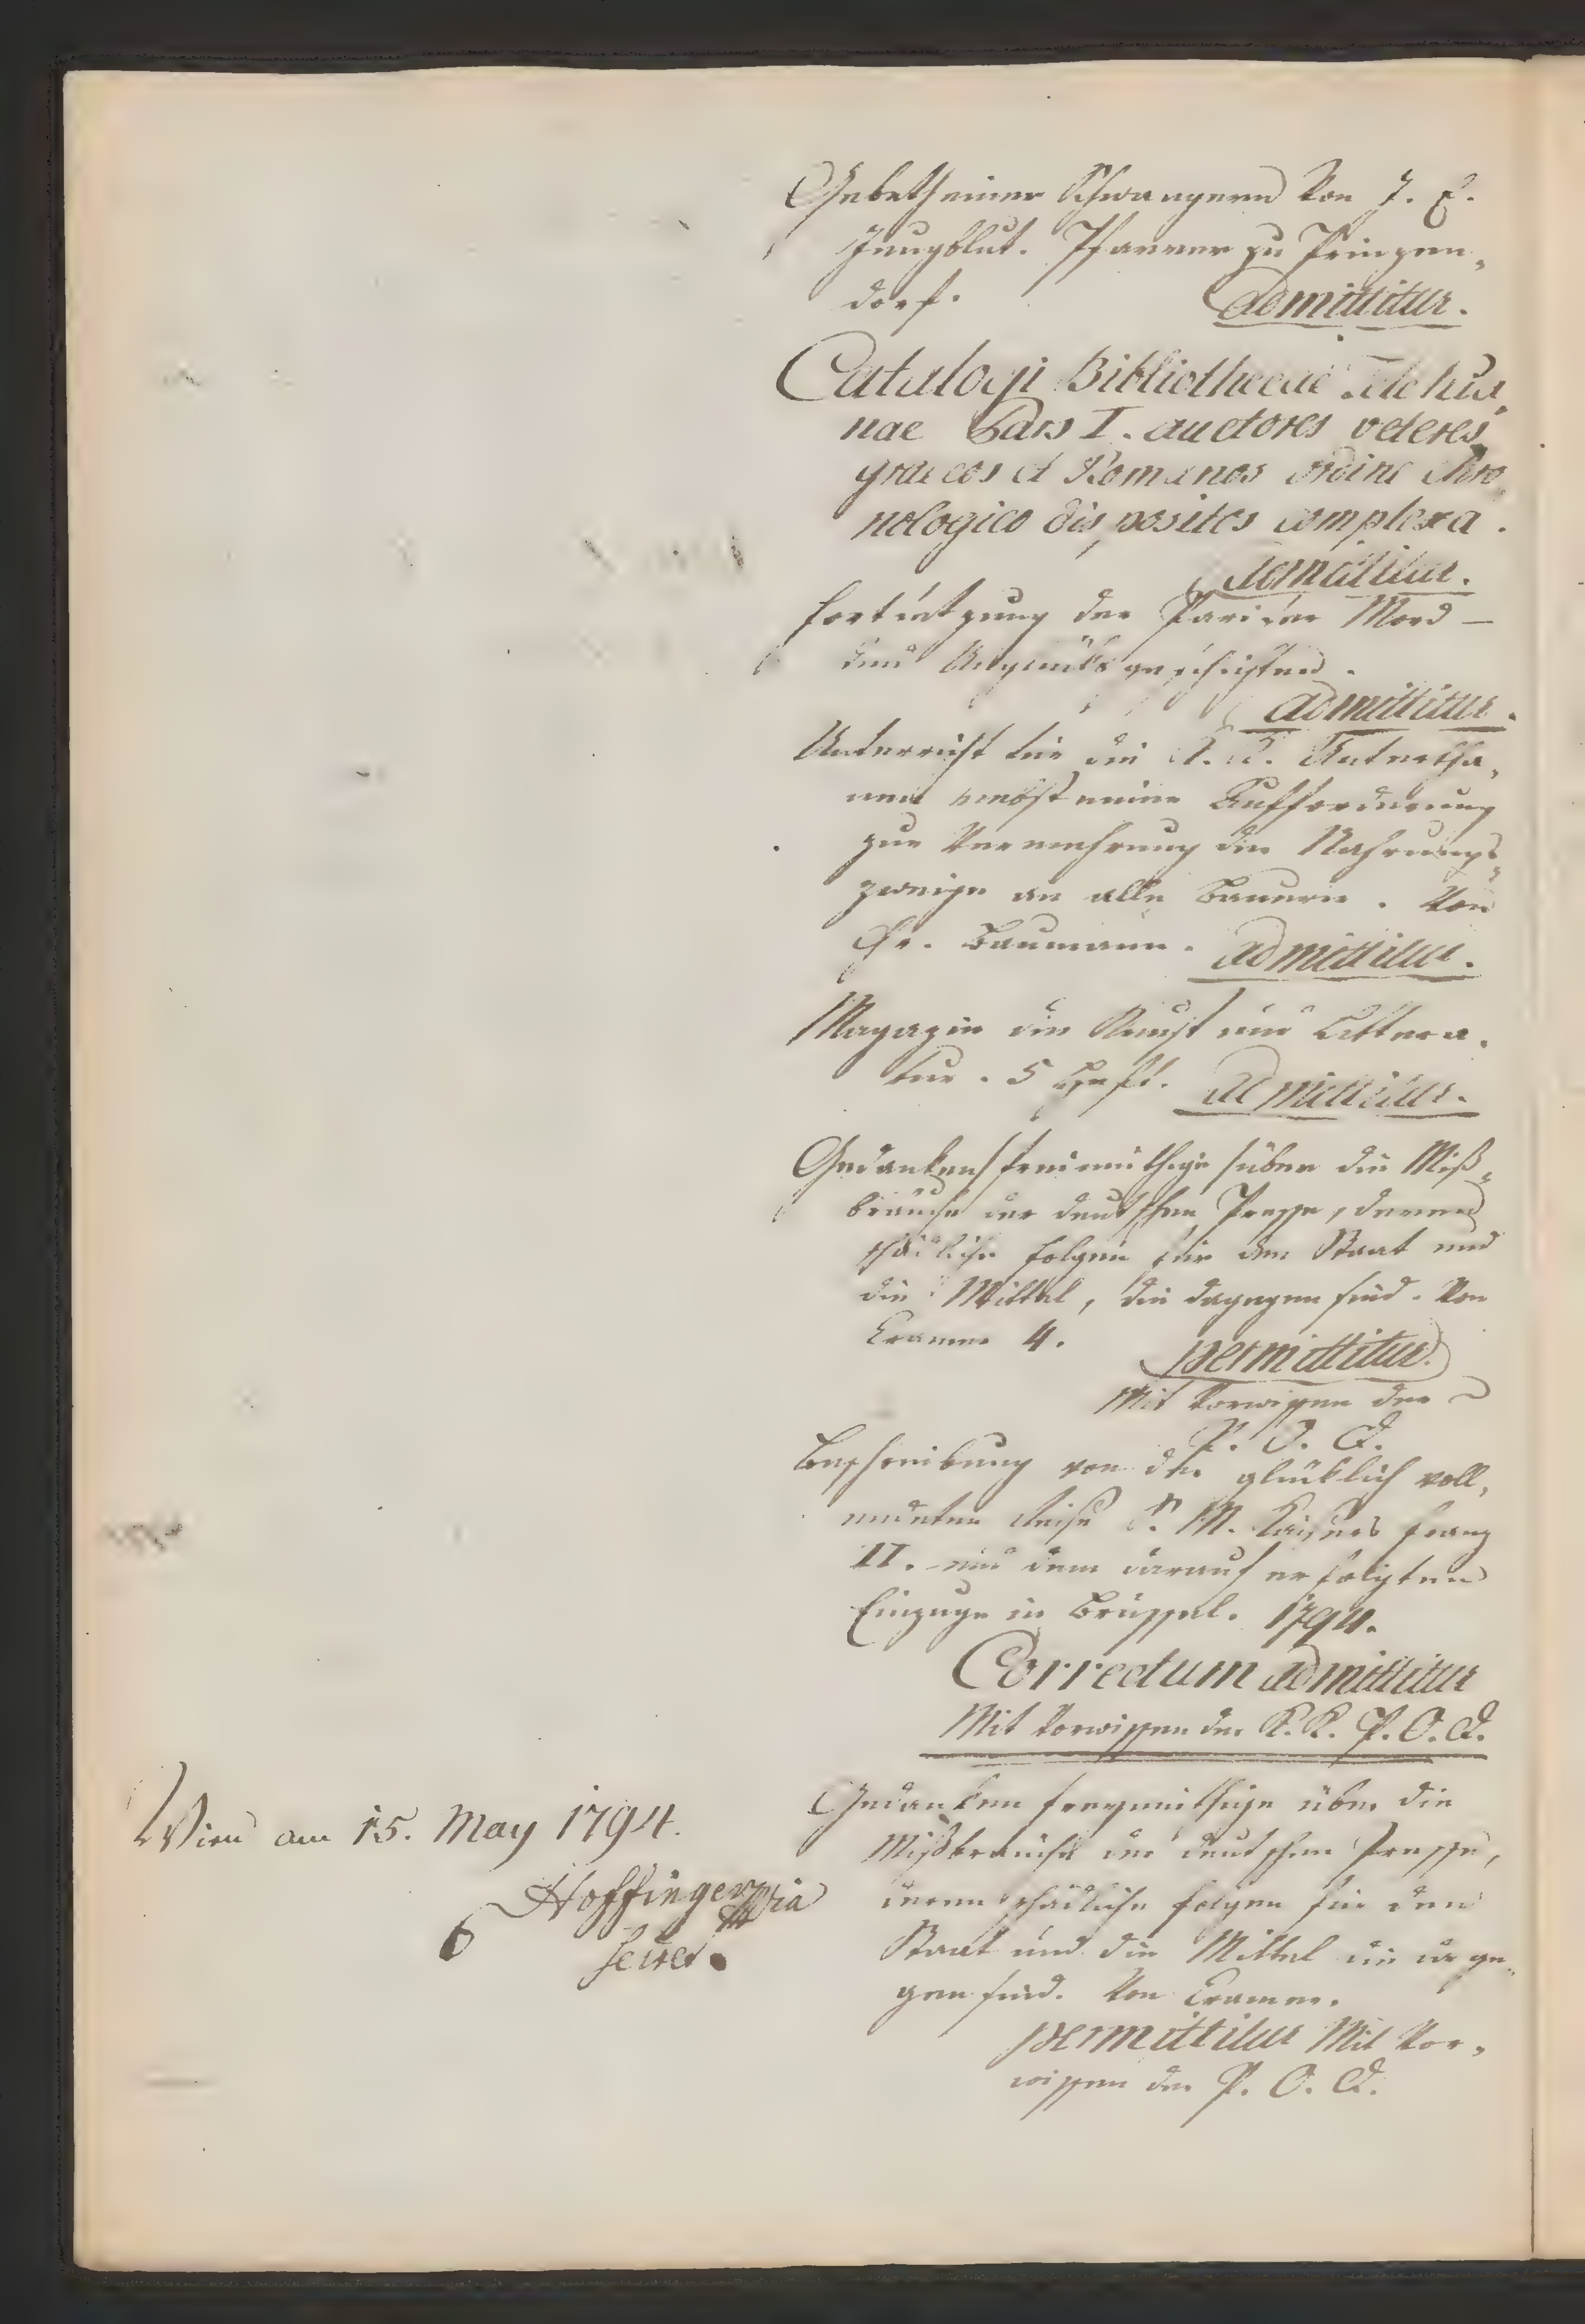 Gebeth einer Schwangern von J. E.
Jungblut. Pfarrer zu Prinzen„
dorf. admittitur.
Catalogi Bibliothecae
nae Pars I. auctores veteres
graecos et Romanos ordine Chro„
nologico dispositos complexa.
admittitur.
Fortsetzung der Pariser Mord —
und Unglücksgeschichten.
admittitur.
Unterricht für die K. K. Untertha„
nen nebst einer Aufforderung
zur Vermehrung der Nahrungs„
zweige an alle Bauern. Von
Chr. Baumann. admittitur.
Magazin der Kunst und Littera„
tur. 5 Heft. admittitur.
Gedanken freimüthige über die Miß„
bräuche der deutschen Presse, deren
schädliche Folgen für den Staat und
die Mittel, die dagegen sind. Von
Cramer 4. permittitur.
Mit Vorwissen der
P. O. D.
Beschreibung von der glücklich voll„
endeten Reise S. M. Kaisers Franz
II. und dem darauf erfolgten
Einzuge in Brüssel. 1794.
Correctum admittitur
Mit Vorwissen der K. K. P. O. D.
Wien am 15. May 1794.
Hoffinger
Secret.
Gedanken freymüthige über die
Mißbräuche der deutschen Presse,
deren schädliche Folgen für den
Staat und die Mittel die dage„
gen sind. Von Cramer.
permittitur Mit Vor„
wissen der P. O. D.